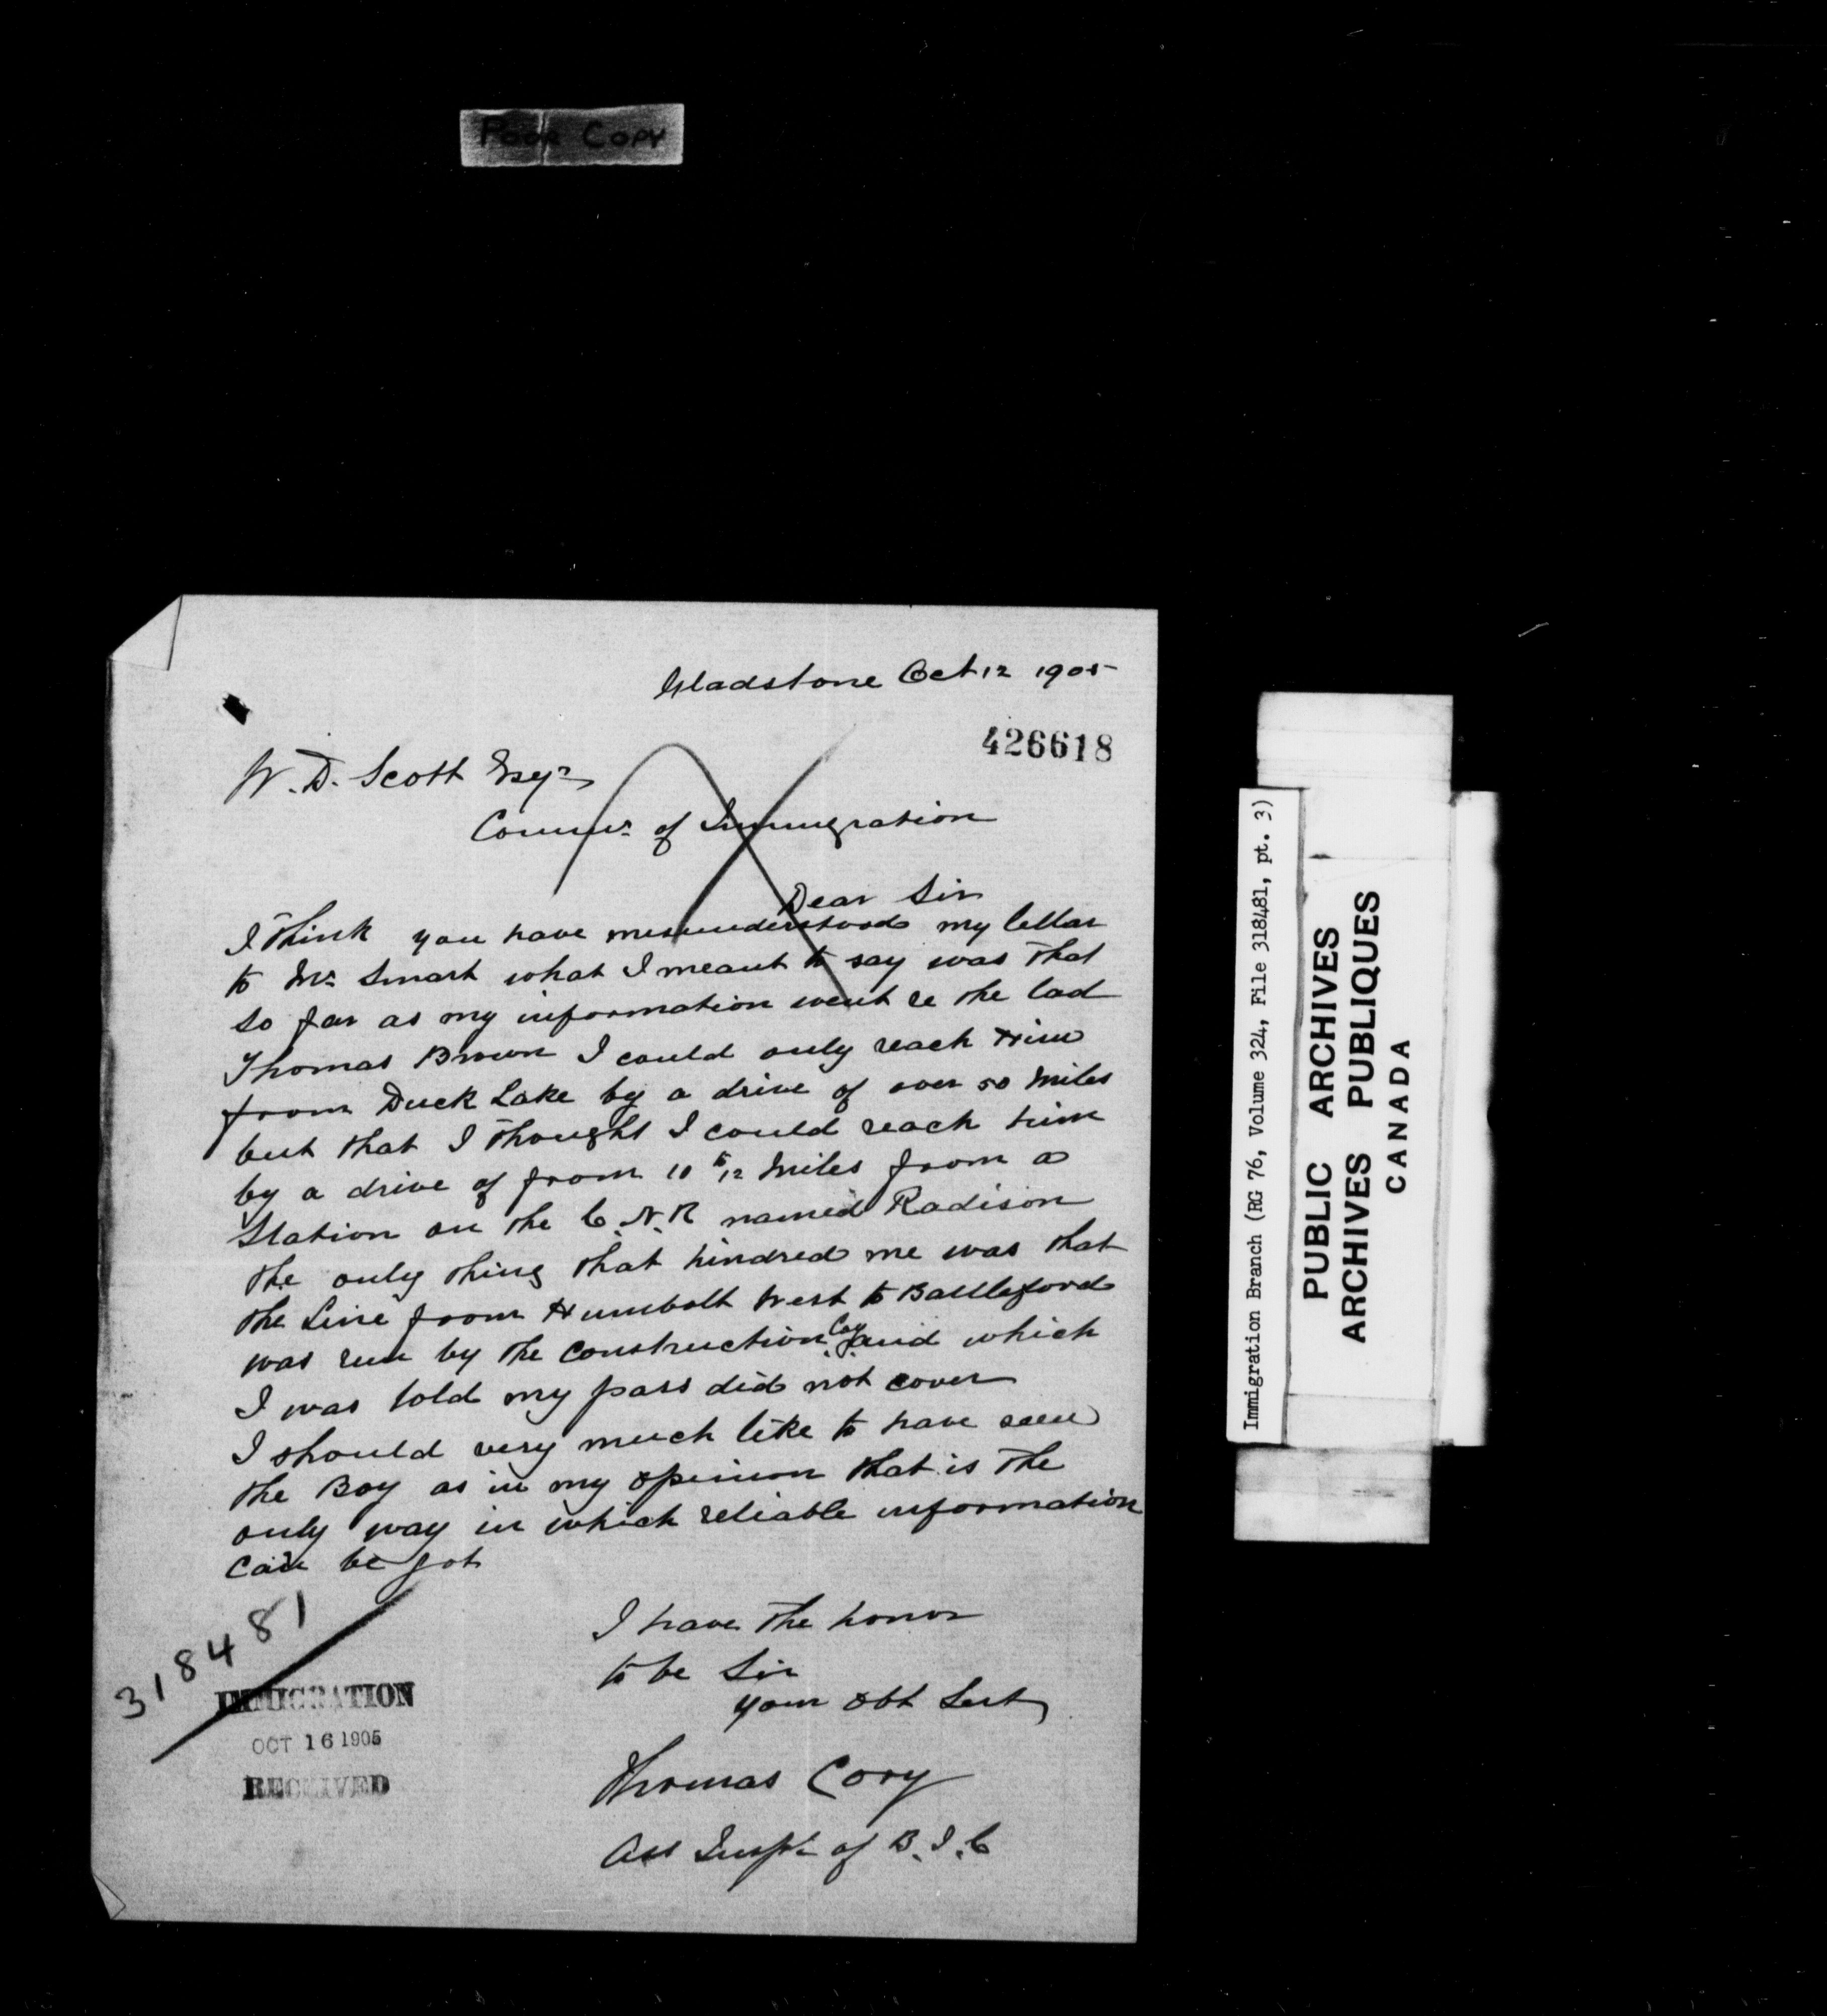 Poor Copy
Gladstone Oct 12 1905
426618
W. D. Scott Esqr
Commr of Immigration
Dear Sir
I think you have misunderstood my letter
to Mr Smart what I meant to say was that
so far as my information went re the lad
Thomas Brown I could only reach Him
from Duck Lake by a drive of over 50 Miles
but that I thought I could reach him
by a drive of from 10 to 12 Miles from a
Station on the C.N.R named Radison
the only thing that hindred me was that
the Line from Humbolt West to Battleford
was run by the Construction Coy and which
I was told my pass did not cover
I should very much like to have seen
the Boy as in my opinion that is the
only way in which reliable information
can be got
I have the honor
to be Sir
your Obt Servt
Thomas Cory
Ass Inspr of B.I.C
318481
IMMIGRATION
OCT 16 1905
RECEIVED
Immigration Branch (RG 76, Volume 324, File 318481, pt. 3)
PUBLIC ARCHIVES
ARCHIVES PUBLIQUES
CANADA